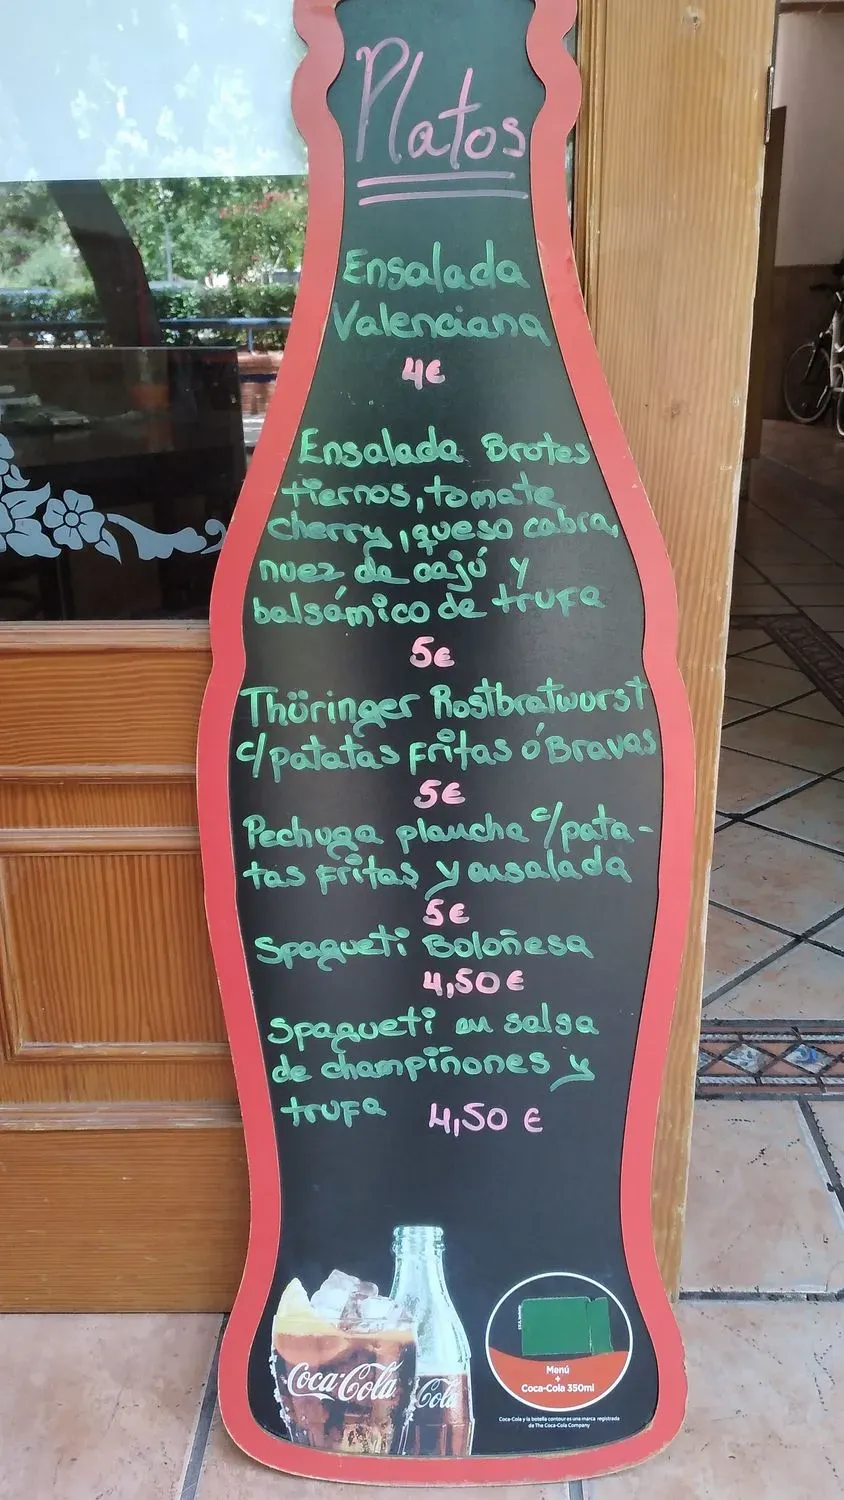 Platos
Ensalada
Valenciana
4€
Ensalada Brotes
tiernos, tomate
cherry, queso cabra,
nuez de cajú y
balsámico de trufa
5€
Thüringer Rostbratwurst
c/patatas fritas ó Bravas
5€
Pechuga plancha c/pata-
tas fritas y ensalada
5€
Spagueti Boloñesa
4,50€
Spagueti en salsa
de champiñones y
trufa 4,50 €
Coca-Cola
Coca-Cola
Menú
+
Coca-Cola 350ml
Coca-Cola y la botella contour es una marca registrada
de The Coca-Cola Company